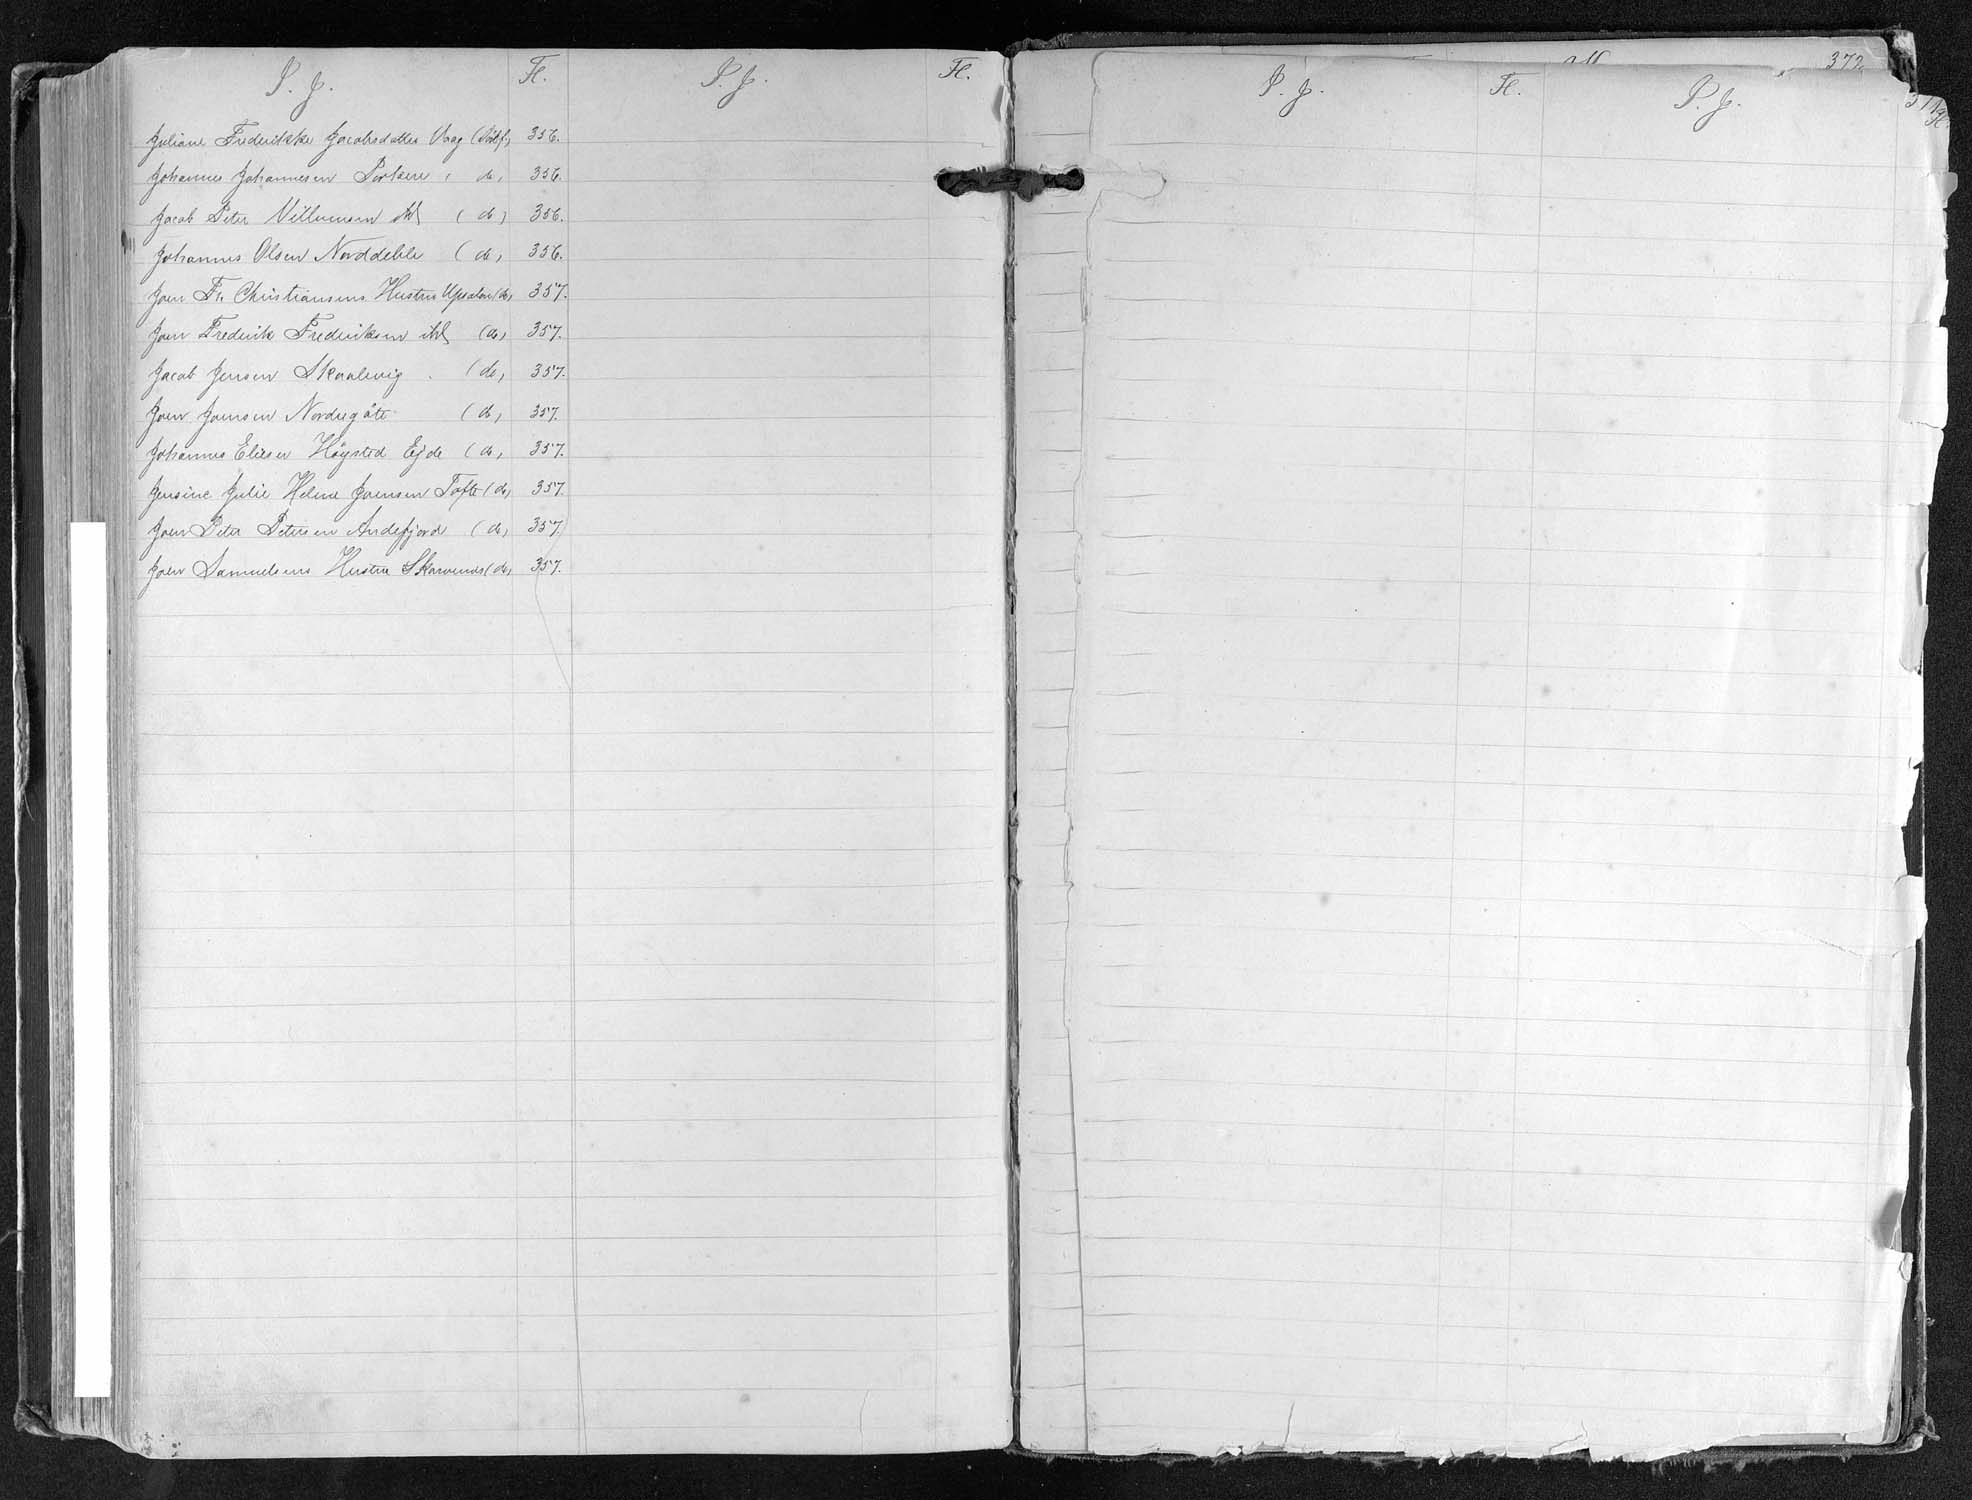 I. J. Fl. I. J. Fl.
Juliane Frederikke Jacobsdatter Vaag 356.
Johannes Johannesen Porkere ( do, 356.
Jacob Peter Villumsen ibd ( do ) 356.
Johannes Olsen Norddeble ( do, 356.
Joen Fr. Christiansens Hustru (do, 357.
Joen Frederik Frederiksen ibd (do, 357.
Jacob Jensen Skaalevig ( do, 357.
Joen Joensen Nordregöte ( do, 357.
Johannes Eliesen Höysted Ejde ( do, 357.
Jensine Julie Helene Joensen Tofte (do, 357.
Joen Peter Petersen Andefjord ( do, 357.
Joen Samuelsens Hustru (do, 357.
I. J. Fl. I. J.
372